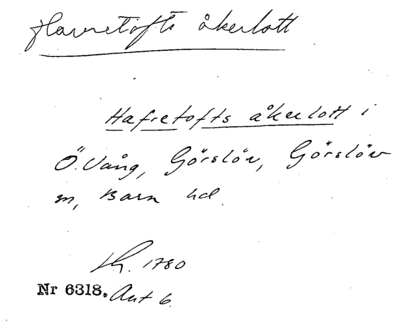 Havretofts åkerlott
Hafretofts åkerlott i
Ö. Vång, Görslöv, Görslöv
sn, Bara hd.
Lh. 1780
Nr 6318. Akt 6.